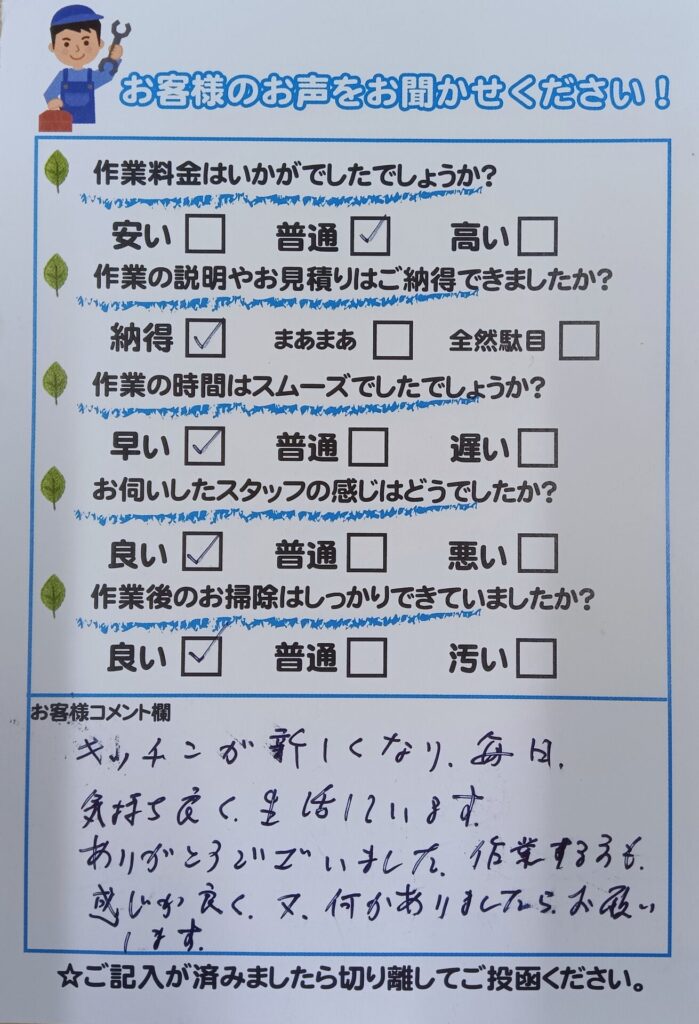 お客様のお声をお聞かせください！
作業料金はいかがでしたでしょうか？
安い 普通 高い
作業の説明やお見積りはご納得できましたか？
納得 まあまあ 全然駄目
作業の時間はスムーズでしたでしょうか？
早い 普通 遅い
お伺いしたスタッフの感じはどうでしたか？
良い 普通 悪い
作業後のお掃除はしっかりできていましたか？
良い 普通 汚い
お客様コメント欄
キッチンが新しくなり、毎日、
気持ち良く、生活しています。
ありがとうございました。作業する方も、
感じが良く、又、何かありましたら、お願い
します。
☆ご記入が済みましたら切り離してご投函ください。